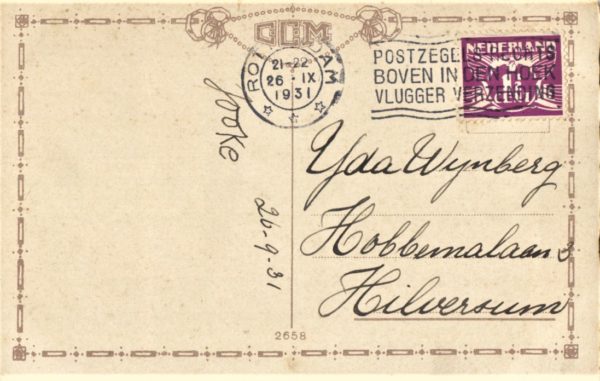 DCM
ROTTERDAM
21-22
26·IX
1931
POSTZEGEL RECHTS
BOVEN IN DEN HOEK
VLUGGER VERZENDING
NEDERLAND
Jooke
26-9-31
Yda Wynberg
Hobbemalaan 3
Hilversum
2658